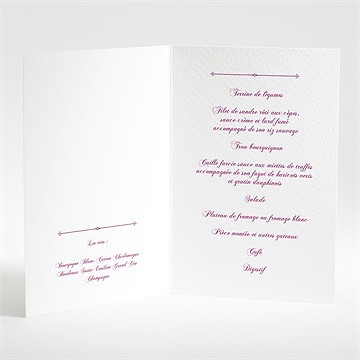 Les vins :
Bourgogne Blanc Corton Charlemagne
Bordeaux Saint-Emilion Grand Cru
Champagne
Terrine de légumes
Filet de sandre rôti aux cèpes,
sauce crème et lard fumé
accompagné de son riz sauvage
Trou bourguignon
Caille farcie sauce aux miettes de truffes
accompagnée de son fagot de haricots verts
et gratin dauphinois
Salade
Plateau de fromage ou fromage blanc
Pièce montée et autres gâteaux
Café
Digestif